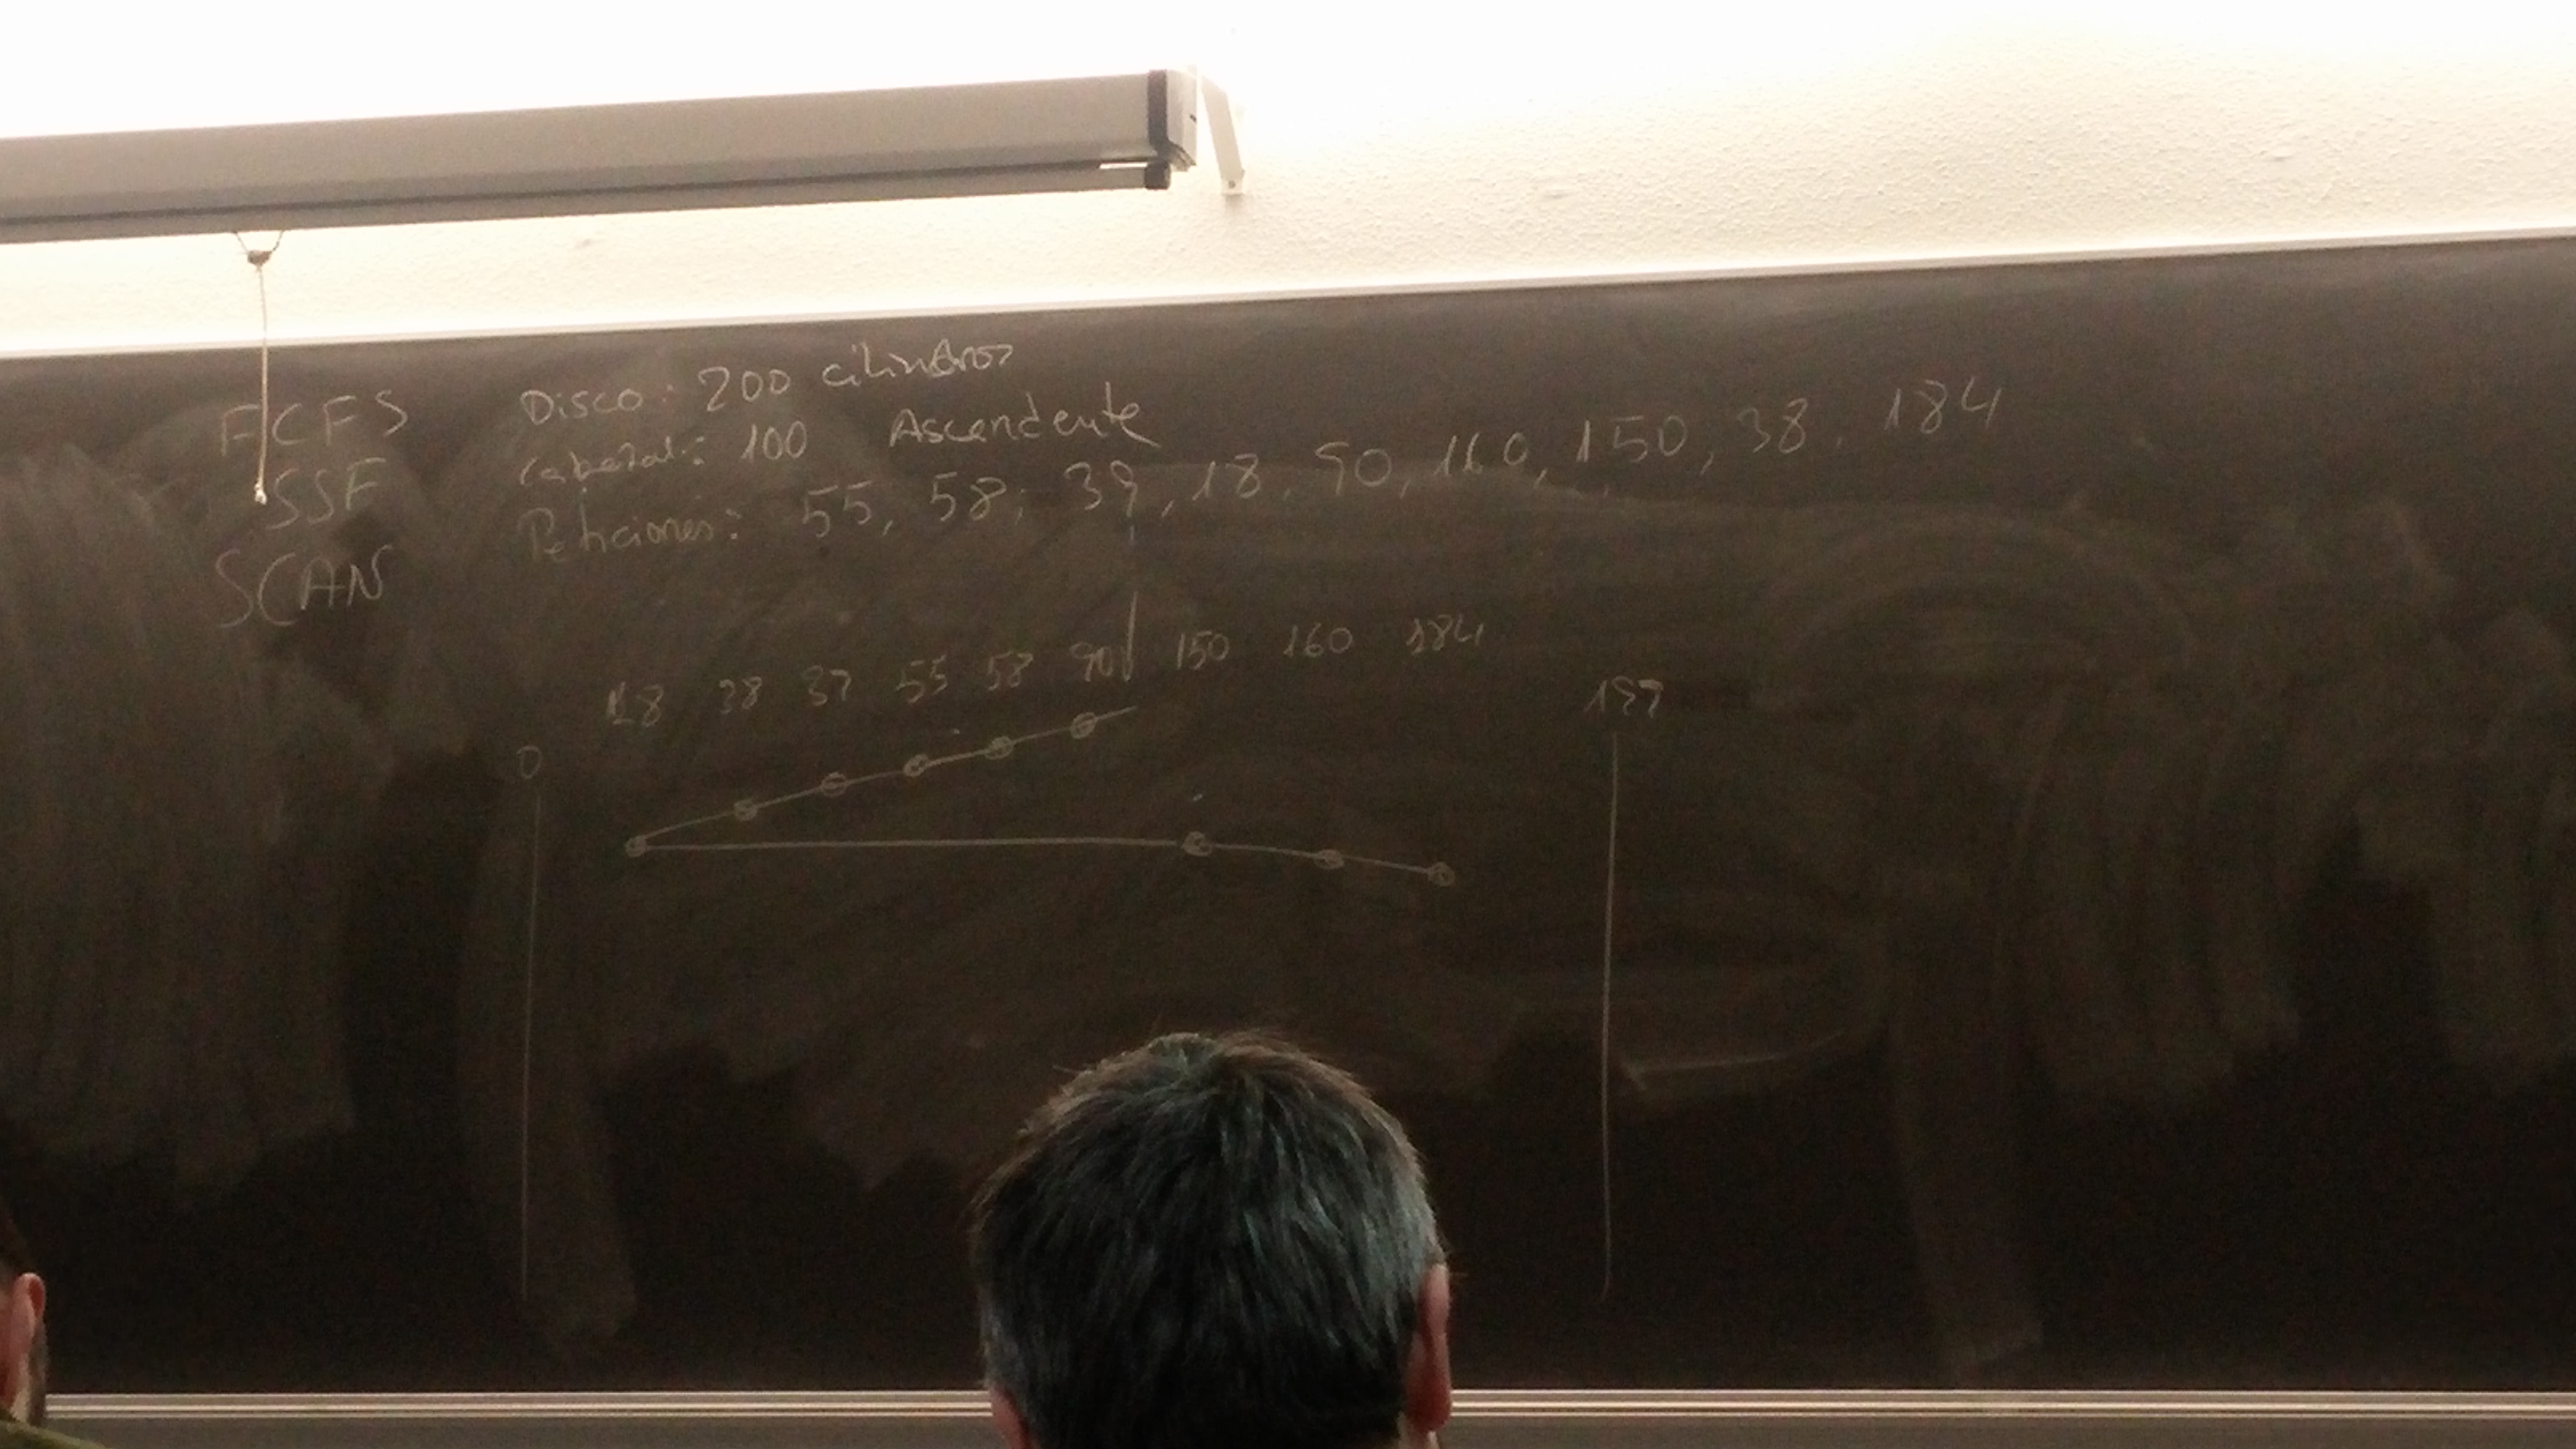 FCFS
SSF
SCAN
Disco: 200 cilindros
Cabezal: 100 Ascendente
Peticiones: 55, 58, 39, 18, 90, 160, 150, 38, 184
18 38 39 55 58 90 150 160 184
0
199